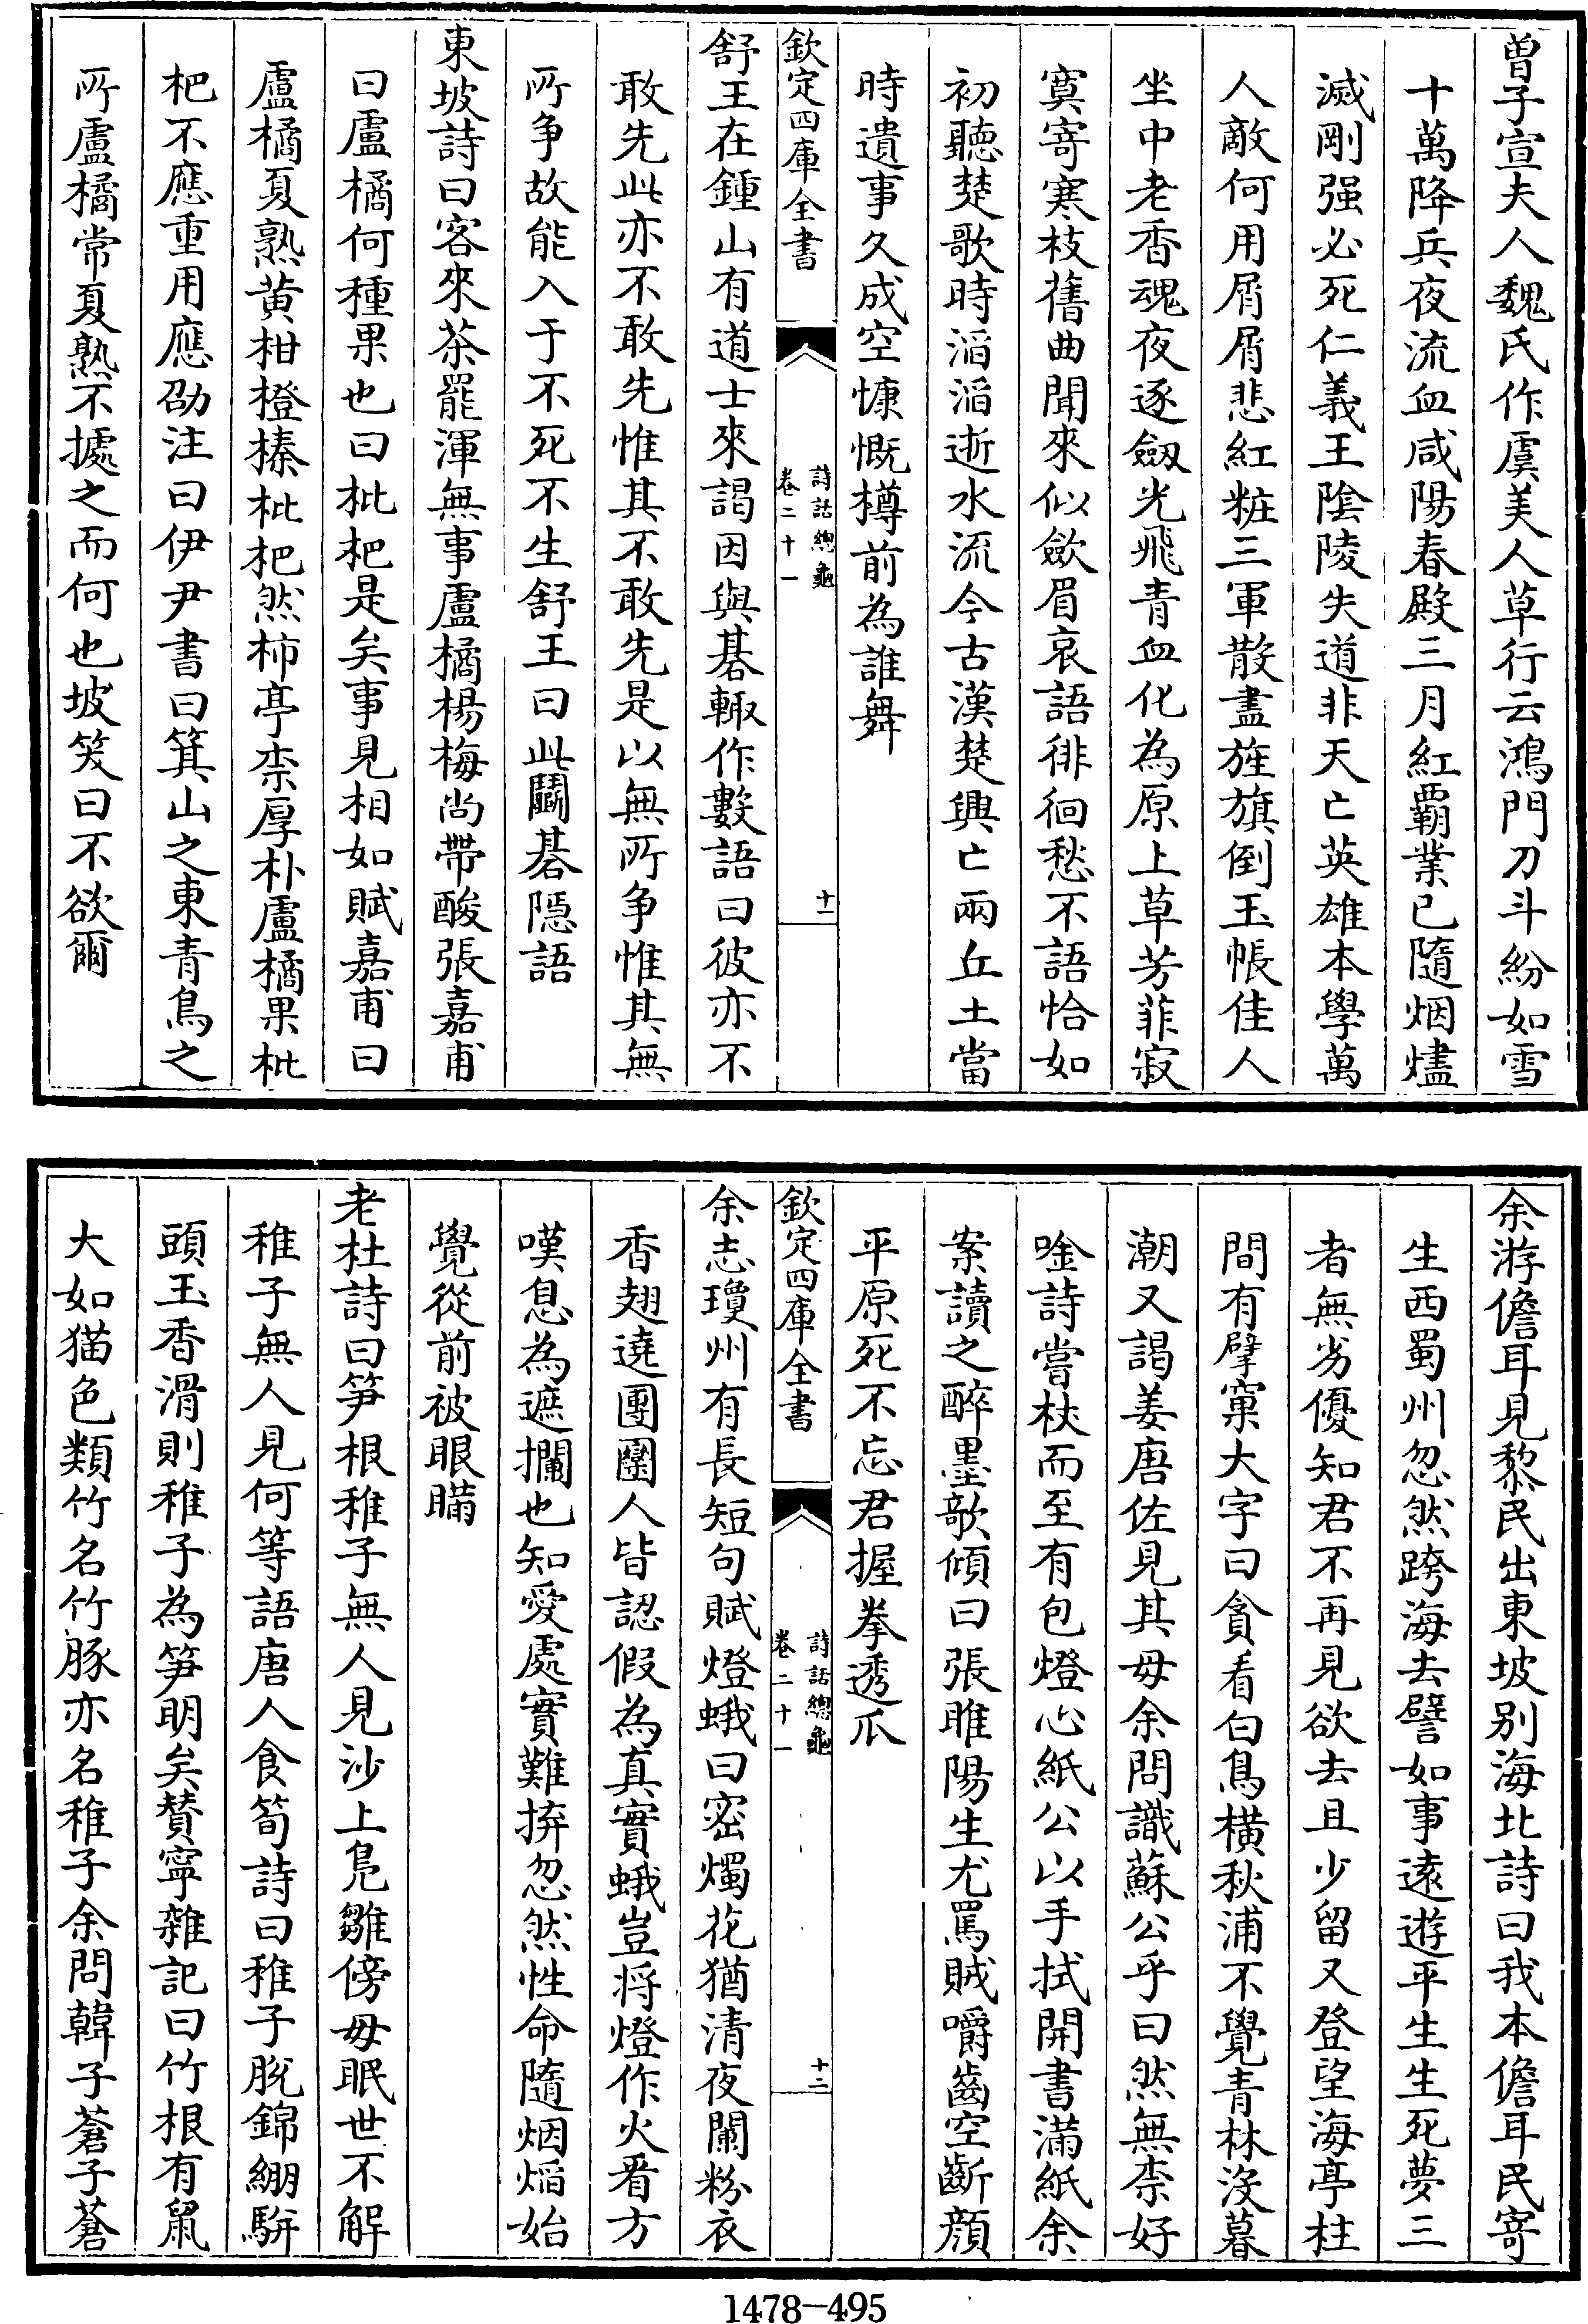 曾子宣夫人魏氏作虞美人草行云鴻門刀斗紛如雪
十萬降兵夜流血咸陽春殿三月紅覇業已隨烟燼
滅剛强必死仁義王陰陵失道非天亡英雄本學萬
人敵何用屑屑悲紅粧三軍散盡旌旗倒玉帳佳人
坐中老香魂夜逐劔光飛青血化為原上草芳菲寂
寞寄寒枝舊曲聞來似歛眉哀語徘徊愁不語恰如
初聽楚歌時滔滔逝水流今古漢楚興亡兩丘土當
時遺事久成空慷慨樽前為誰舞
欽定四庫全書
詩話總龜
卷二十一
十一
舒王在鍾山有道士來謁因與棊輒作數語曰彼亦不
敢先此亦不敢先惟其不敢先是以無所争惟其無
所争故能入于不死不生舒王曰此鬬棊隱語
東坡詩曰客來茶罷渾無事盧橘楊梅尚帶酸張嘉甫
曰盧橘何種果也曰枇杷是矣事見相如賦嘉甫曰
盧橘夏熟黄柑橙榛枇杷然柿亭柰厚朴盧橘果枇
杷不應重用應劭注曰伊尹書曰箕山之東青鳥之
所盧橘常夏熟不據之而何也坡笑曰不欲爾
余游儋耳見黎民出東坡别海北詩曰我本儋耳民寄
生西蜀州忽然跨海去譬如事逺遊平生生死夢三
者無劣優知君不再見欲去且少留又登望海亭柱
間有擘窠大字曰貪看白鳥横秋浦不覺青林沒暮
潮又謁姜唐佐見其母余問識蘇公乎曰然無柰好
唫詩嘗杖而至有包燈心紙公以手拭開書滿紙余
案讀之醉墨欹傾曰張睢陽生尤罵賊嚼齒空齗顔
平原死不忘君握拳透爪
欽定四庫全書
詩話總龜
卷二十一
十二
余志瓊州有長短句賦燈蛾曰宻燭花猶清夜闌粉衣
香翅遶團圞人皆認假為真實蛾豈将燈作火看方
嘆息為遮攔也知愛處實難拚忽然性命隨烟焰始
覺從前被眼瞞
老杜詩曰笋根稚子無人見沙上鳬雛傍母眠世不解
稚子無人見何等語唐人食筍詩曰稚子脫錦綳駢
頭玉香滑則稚子為笋明矣賛寧雜記曰竹根有鼠
大如猫色類竹名竹豚亦名稚子余問韓子蒼子蒼
1478—495